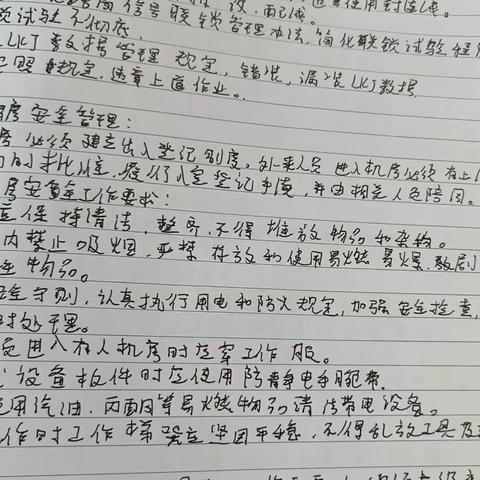 信号联锁管理办法,简化联锁试验程序
项试验不彻底.
LKJ数据管理规定,错装,漏装LKJ数据
照规定,违章上道作业。
房安全管理:
房必须建立出入登记制度。外来人员进入机房必须有上
门的批准,履行入室登记手续,并由相关人员陪同。
房安全工作要求:
应保持清洁、整齐,不得堆放物品和杂物。
内禁止吸烟,严禁存放和使用易燃、易爆、
物品。
安全守则,认真执行用电和防火规定,加强安全检查,
时处理。
员进入有人机房时应穿工作服。
设备板件时应使用防静电手腕带.
使用汽油.丙酮等易燃物品清洁带电设备。
作时工作梯要立坚固平稳,不得乱放工具及